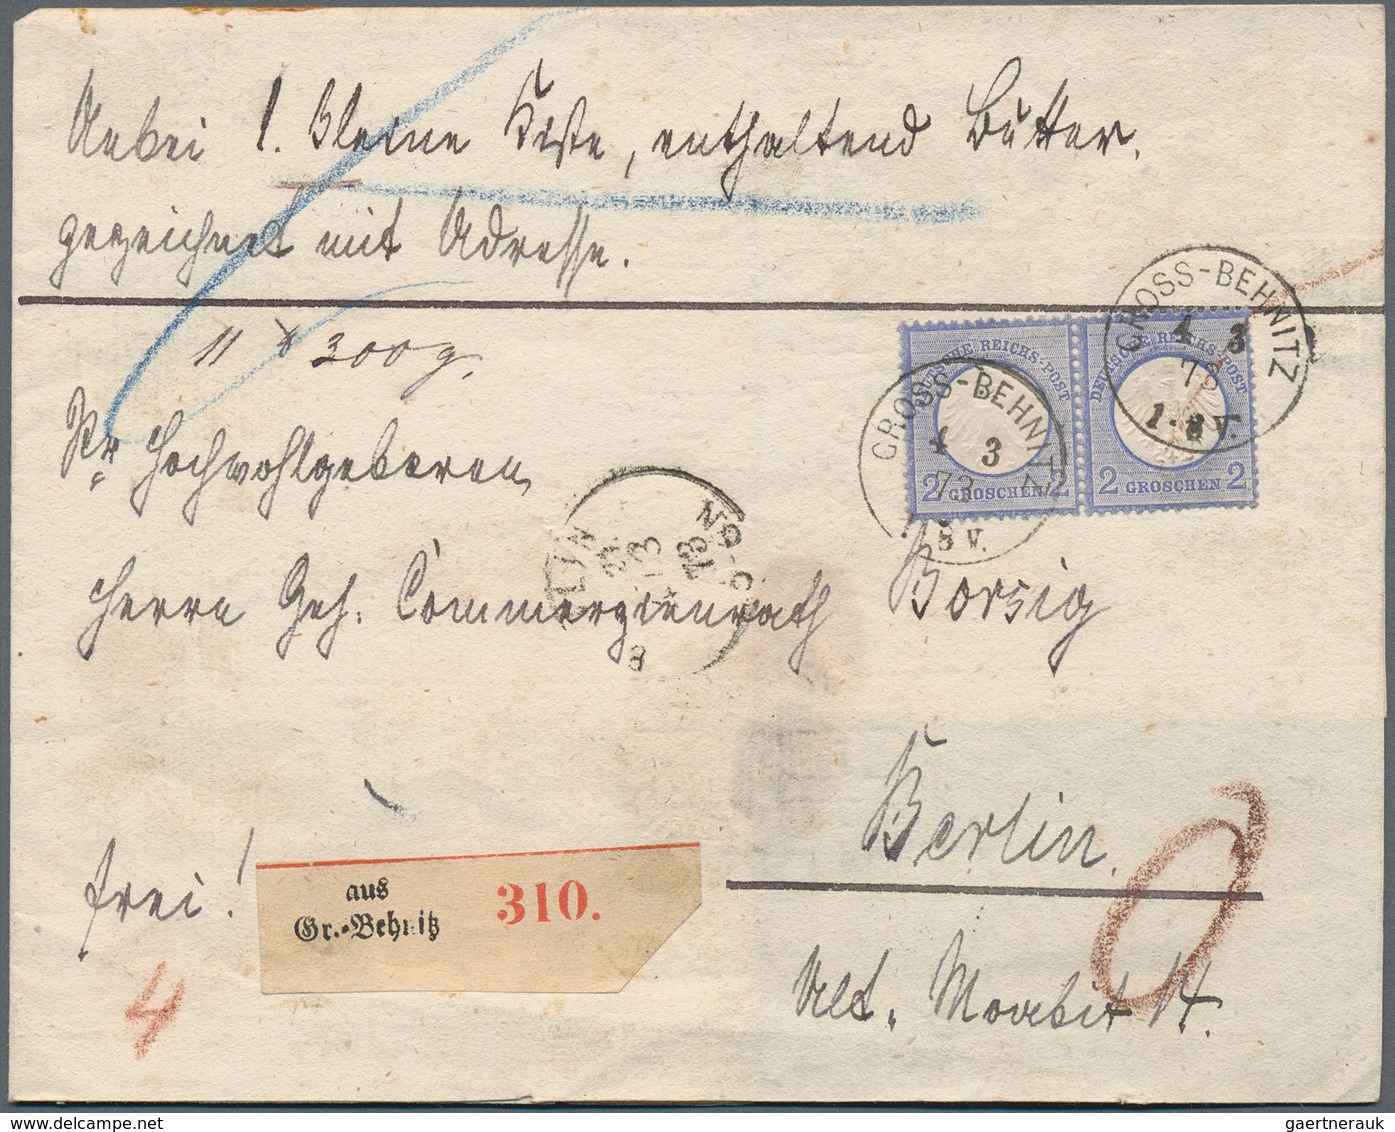 Anbei 1. kleine Kiste, enthaltend Butter,
gezeichnet mit Adresse.
11 ℔ 300 g.
Sr Hochwohlgeboren,
Herrn Geh. Commerzienrath Borsig
Berlin.
Alt. Moabit 14.
frei!
4
0
aus
Gr.-Behnitz
310.
DEUTSCHE REICHS-POST
2 GROSCHEN 2
DEUTSCHE REICHS-POST
2 GROSCHEN 2
GROSS-BEHNITZ
4 3
1-8 V.
GROSS-BEHNITZ
3
73
8 V.
gaertnerauk